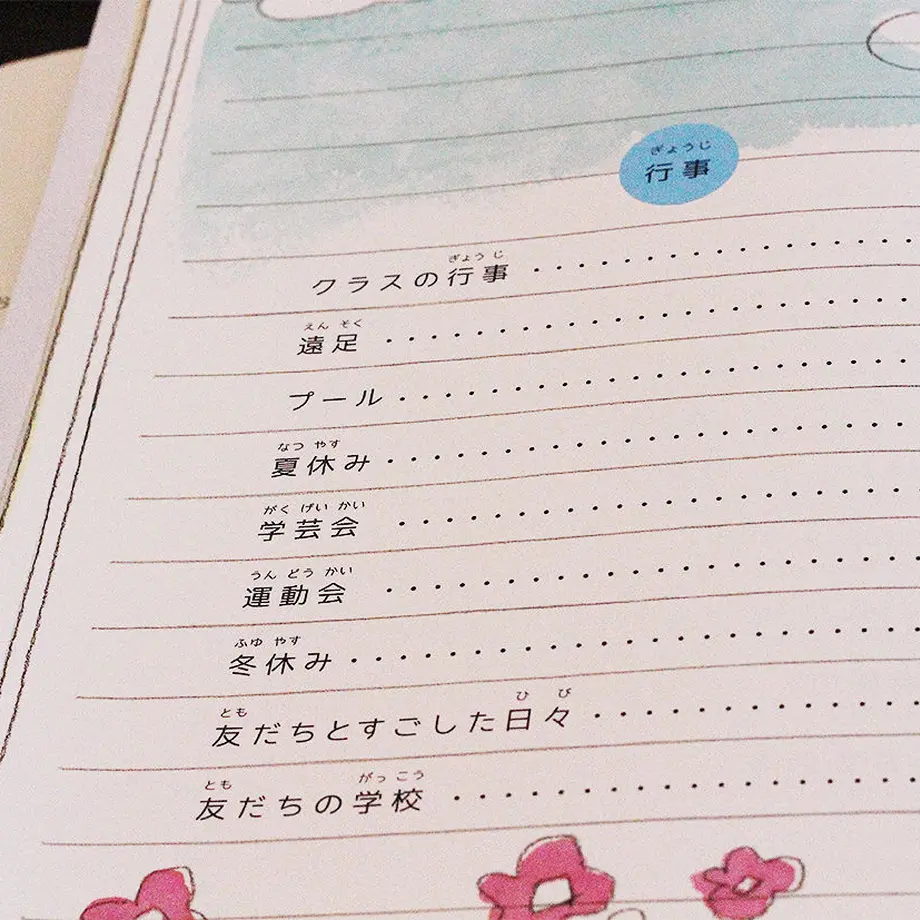 ぎょうじ
行事
ぎょうじ
クラスの行事
えんそく
遠足
プール
なつやす
夏休み
がくげいかい
学芸会
うんどうかい
運動会
ふゆやす
冬休み
とも ひび
友だちとすごした日々
とも がっこう
友だちの学校